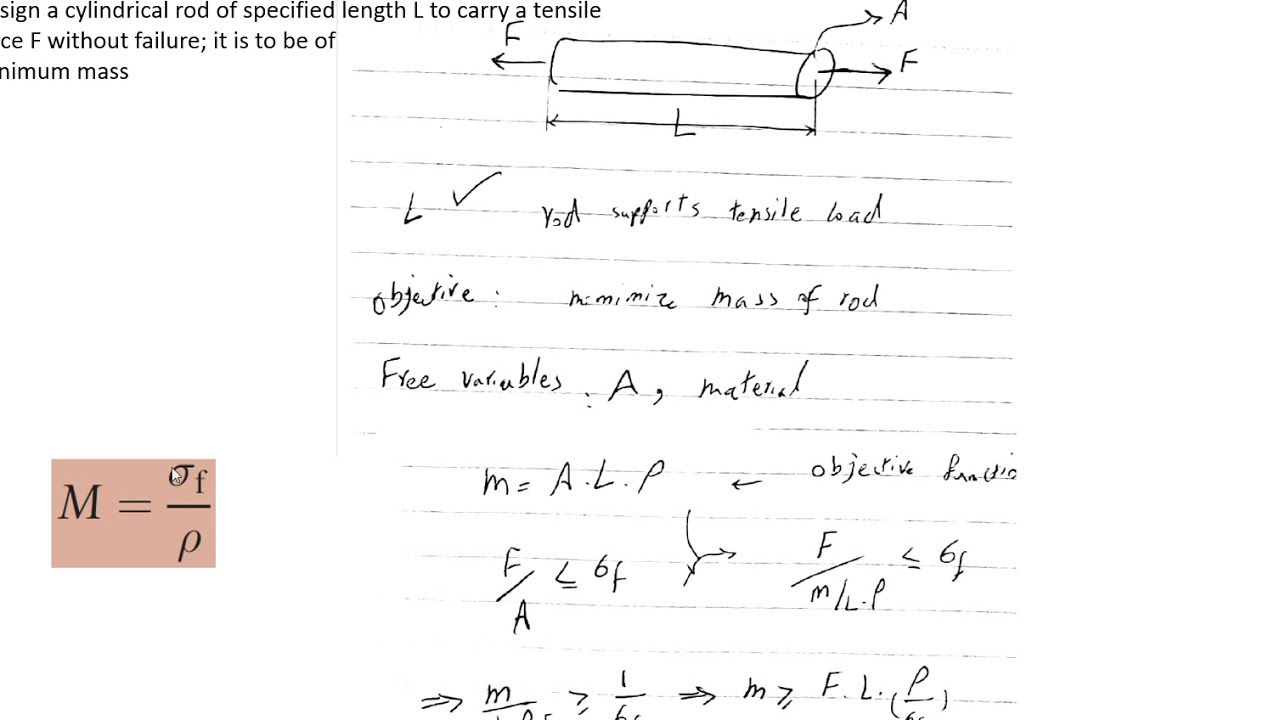 sign a cylindrical rod of specified length L to carry a tensile
ce F without failure; it is to be of
nimum mass
A
F
F
L
L ✓ rod supports tensile load
objective: minimize mass of rod
Free variables: A, material
m = A.L.ρ ← objective functio
F/A ≤ σf → F/m/L.ρ ≤ σf
M = σf/ρ
⇒ m ≥ 1 ⇒ m ≥ F.L.(ρ